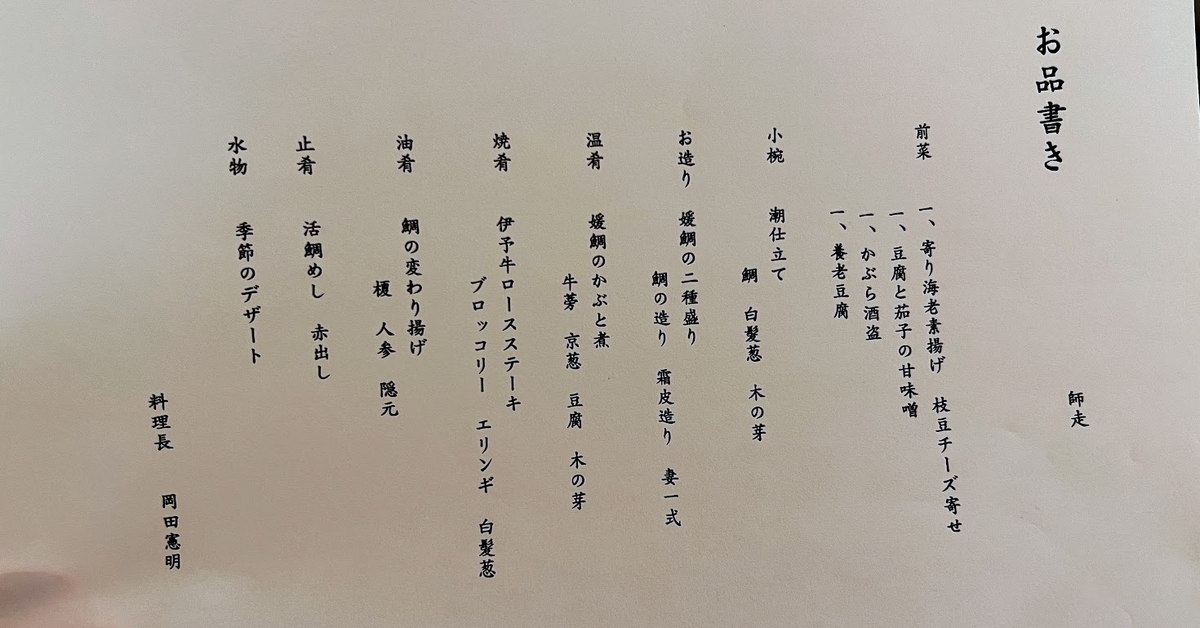 お品書き
師走
前菜
一、寄り海老素揚げ 枝豆チーズ寄せ
一、豆腐と茄子の甘味噌
一、かぶら酒盗
一、養老豆腐
小椀 潮仕立て
鯛 白髪葱 木の芽
お造り 媛鯛の二種盛り
鯛の造り 霜皮造り 妻一式
温肴 媛鯛のかぶと煮
牛蒡 京葱 豆腐 木の芽
焼肴 伊予牛ロースステーキ
ブロッコリー エリンギ 白髪葱
油肴 鯛の変わり揚げ
榎 人参 隠元
止肴 活鯛めし 赤出し
水物 季節のデザート
料理長 岡田憲明